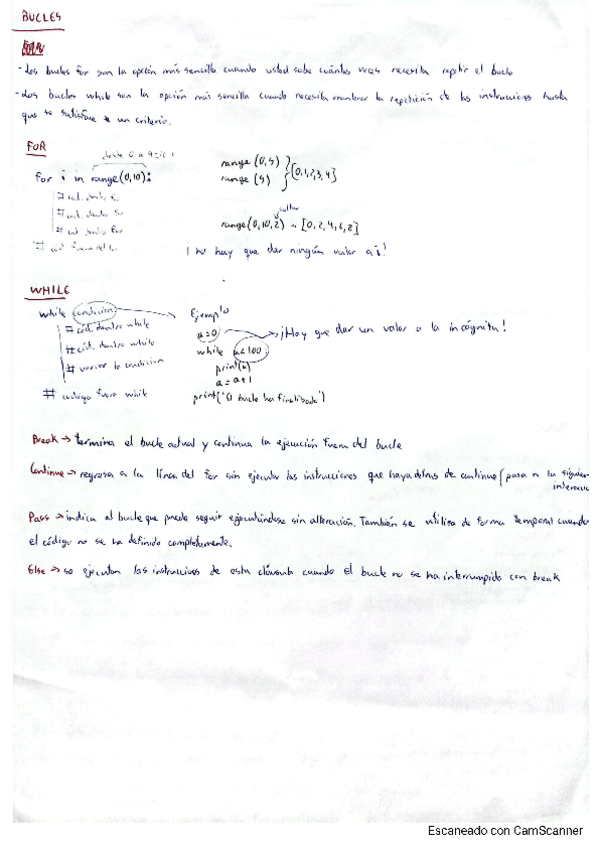 BUCLES
- Los bucles for son la opción más sencilla cuando usted sabe cuántas veces necesita repetir el bucle
- Los bucles while son la opción más sencilla cuando necesita mantener la repetición de las instrucciones hasta
que se satisface un criterio.
FOR
desde 0 a 9
for i in range(0,10):
# cód. dentro for
# cód. dentro for
# cód. dentro for
# cód fuera del for
range (0,5)
range (5)
[0,1,2,3,4]
saltos
range(0,10,2) → [0,2,4,6,8]
¡ no hay que dar ningún valor a i!
WHILE
while condición
# cód. dentro while
# cód. dentro while
# variar la condición
# código fuera while
Ejemplo
a=0
¡Hay que dar un valor a la incógnita!
while a<100:
print(a)
a = a+1
print("El bucle ha finalizado")
Break → termina el bucle actual y continua la ejecución fuera del bucle
Continue → regresa a la línea del for sin ejecutar las instrucciones que haya detras de continue (pasa a la siguien
Pass → indica al bucle que puede seguir ejecutándose sin alteración. También se utiliza de forma temporal cuando
el código no se ha definido completamente.
Else → se ejecutan las instrucciones de esta cláusula cuando el bucle no se ha interrumpido con break
Escaneado con CamScanner